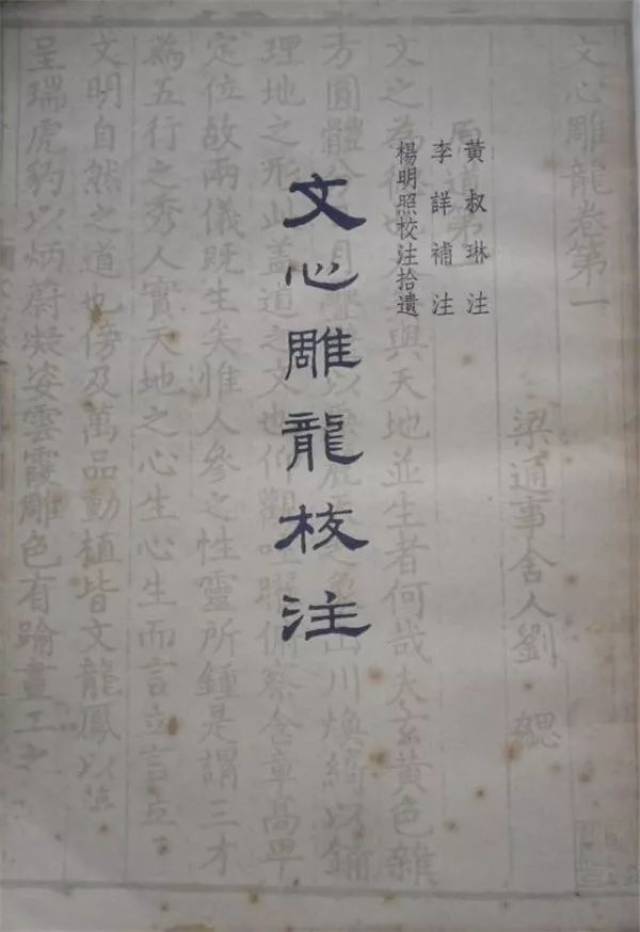 文心雕龍卷第一
梁通事舍人劉勰
黄叔琳注
李詳補注
楊明照校注拾遺
文心雕龍校注
文之為 與天地並生者何哉夫玄黄色雜
方圓體 山川煥綺以鋪
理地之形此蓋道之文也仰觀吐曜俯察含章高卑
定位故兩儀既生矣惟人參之性靈所鍾是謂三才
為五行之秀人實天地之心生心生而言立言立
文明自然之道也傍及萬品動植皆文龍鳳以
呈瑞虎豹以炳蔚凝姿雲霞雕色有踰畫工之